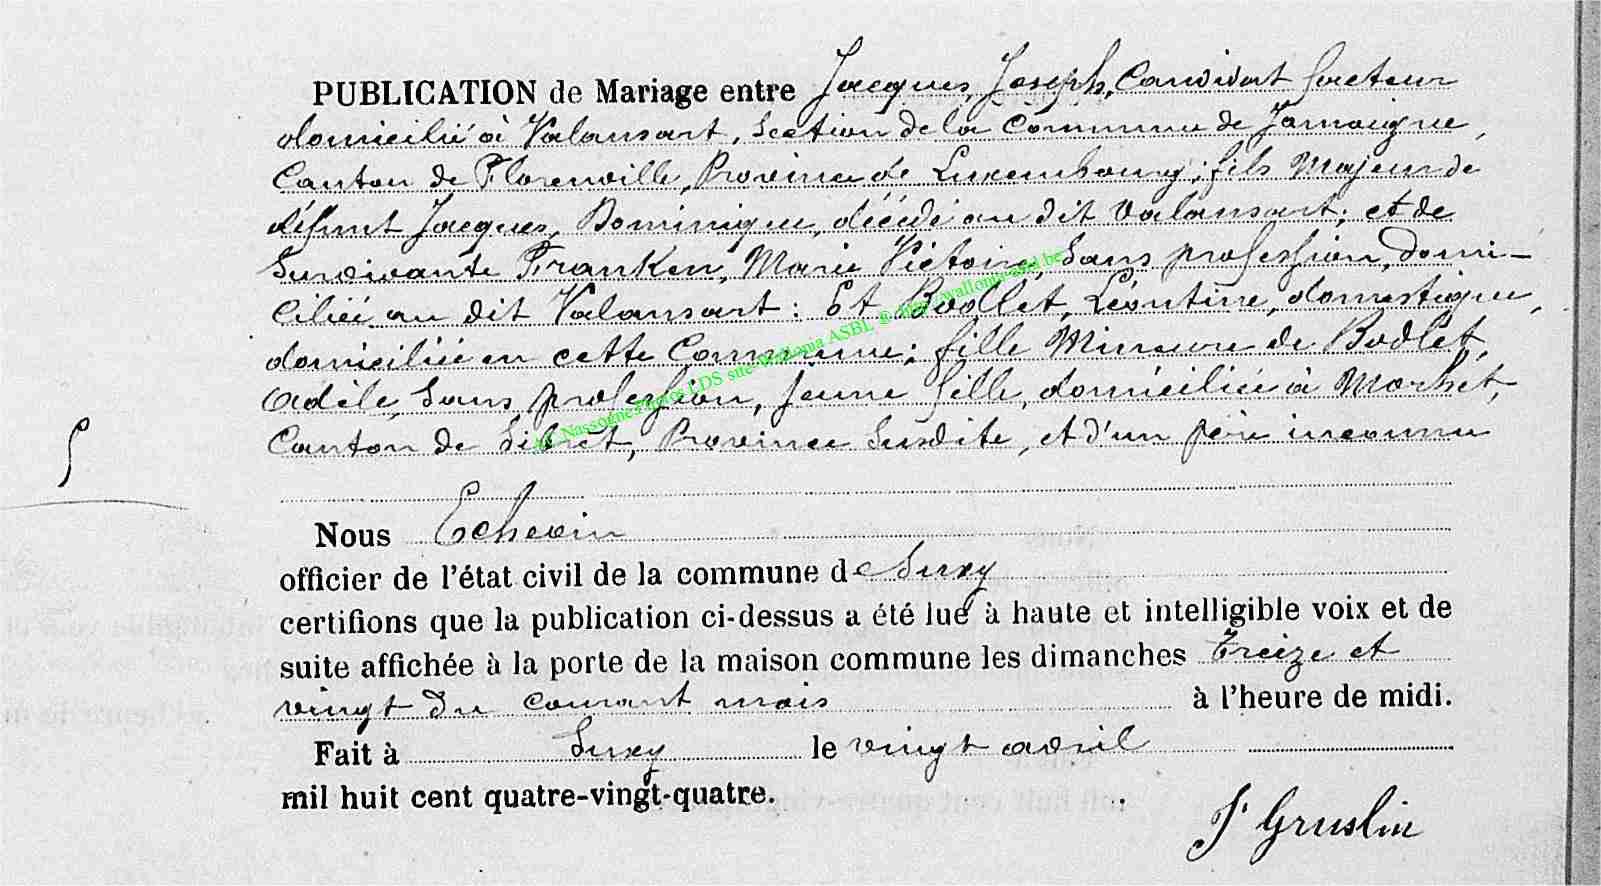 PUBLICATION de Mariage entre Jacques, Joseph, Candidat facteur
domicilié à Valansart, Section de la Commune de Jamoigne,
Canton de Florenville, Province de Luxembourg; fils Majeur de
défunt Jacques, Dominique, décédé au dit Valansart; et de
Survivante Franken, Marie Victoire, Sans profession, domi-
ciliée au dit Valansart : Et Bodlet, Léontine, domestique,
domiciliée en cette Commune; fille Mineure de Bodlet,
Adèle, Sans profession, jeune fille, domiciliée à Morhet,
Canton de Sibret, Province Susdite, et d'un père inconnu
AE Nassogne Photos LDS site Wallonia ASBL @ http://wallonia-asbl.be
5
Nous Echevin
officier de l'état civil de la commune de Suxy
certifions que la publication ci-dessus a été lue à haute et intelligible voix et de
suite affichée à la porte de la maison commune les dimanches treize et
vingt du courant mois à l'heure de midi.
Fait à Suxy le vingt avril
mil huit cent quatre-vingt-quatre.
J Gruslin